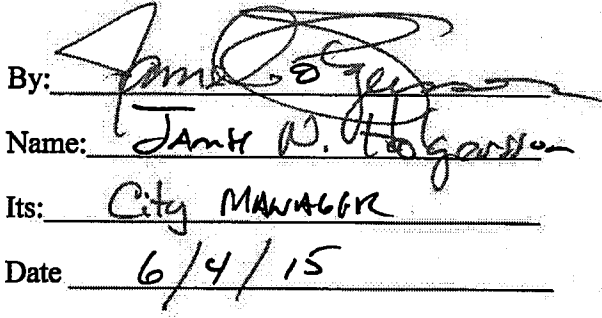 By:
Name: James N. Fogarsson
Its: City MANAGER
Date 6/4/15